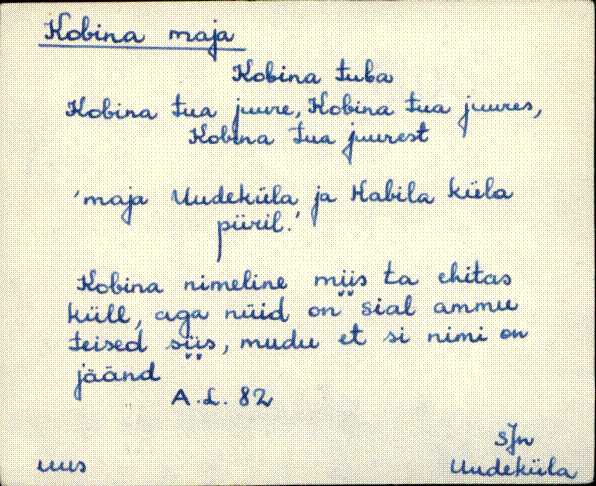 Kobina maja
Kobina tuba
Kobina tua juure, Kobina tua juures,
Kobina tua juurest
'maja Uudeküla ja Kabila küla
püril.'
Kobina nimeline miis ta ehitas
küll, aga nüid on sial ammu
teised siis, mudu et si nimi on
jäänd
A.L. 82
SJn
uus Uudeküla